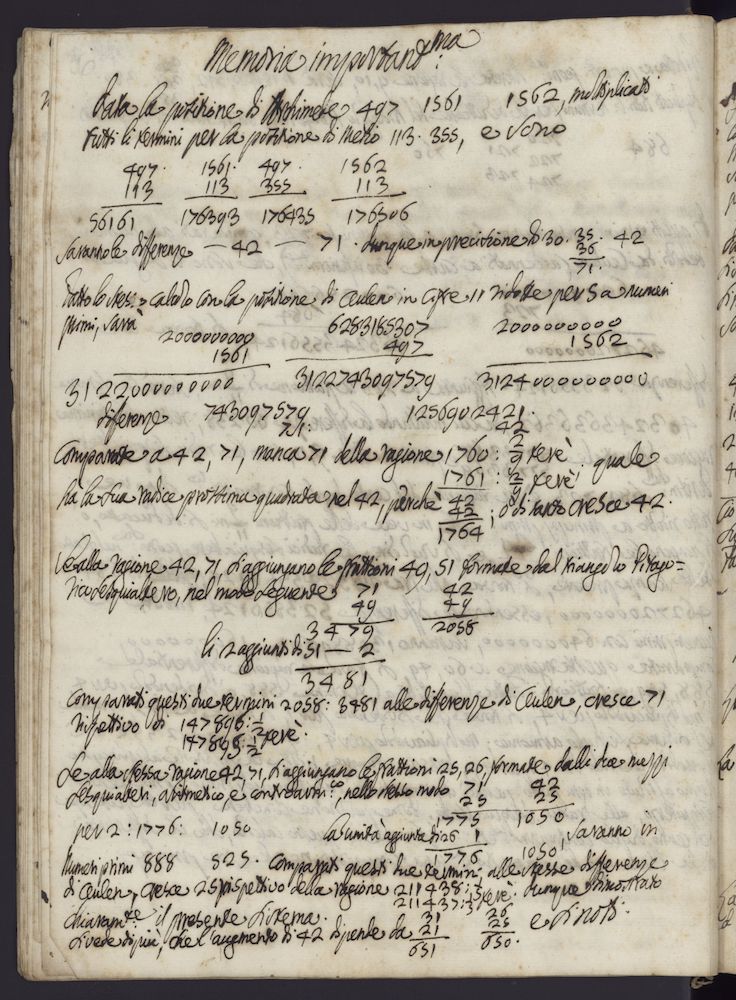 Memoria important.ma
Data la positione di Archimede 497 1561 1562, multiplicati
tutti li termini per la positione di Metio 113. 355, e sono
497. 1561. 497. 1562
113 113 355 113
56161 176393 176435 176506
saranno le differenze — 42 — 71. dunque in precisione di 30. 35. 42
36
71.
fatto lo stesso calculo con la positione di Ceulen in cifre 11 ridotte per 5 a numeri
primi, sarà
200000000 6283185307 2000000000
1561 497 1562
312200000000 3122743097579 3124000000000
diferenze 743097579 1256902421.
71. 42
Comparate a 42, 71, manca 71 della ragione 1760: 2/9 ferè
1761: 2/9 ferè; quale
ha la sua radice prossima quadrata nel 42, perchè 42
42; o di tanto cresce 42.
1764
Se alla ragione 42, 71, s'aggiungano le frattioni 49, 51 formate dal triangolo Pitago=
rico sesquialtero, nel modo seguente 71 42
49 49
3479 2058
li 2 aggiunti di 51 — 2
3481
Comparati questi due termini 2058: 3481 alle differenze di Ceulen, cresce 71
rispettivo di 147896: 1/2
147895: 1/2 ferè.
Se alla stessa ragione 42, 71, s'aggiungano le frattioni 25, 26, formate dalli due mezzi
sesquialteri, aritmetico, e contrarm.co, nello stesso modo 71 42
25 25
1775 1050
per 2: 1776: 1050 la unità aggiunta di 26 1
1776 1050; saranno in
Numeri primi 888 525. Comparati questi due termini alle stesse differenze
di Ceulen, cresce 25 rispettivo della ragione 211438:
211437: ferè. dunque dimostrato
chiaram.te il presente sistema. 31 26 e si noti:
si vede di più, che l'augmento di 42 dipende da 21 25
651 650.